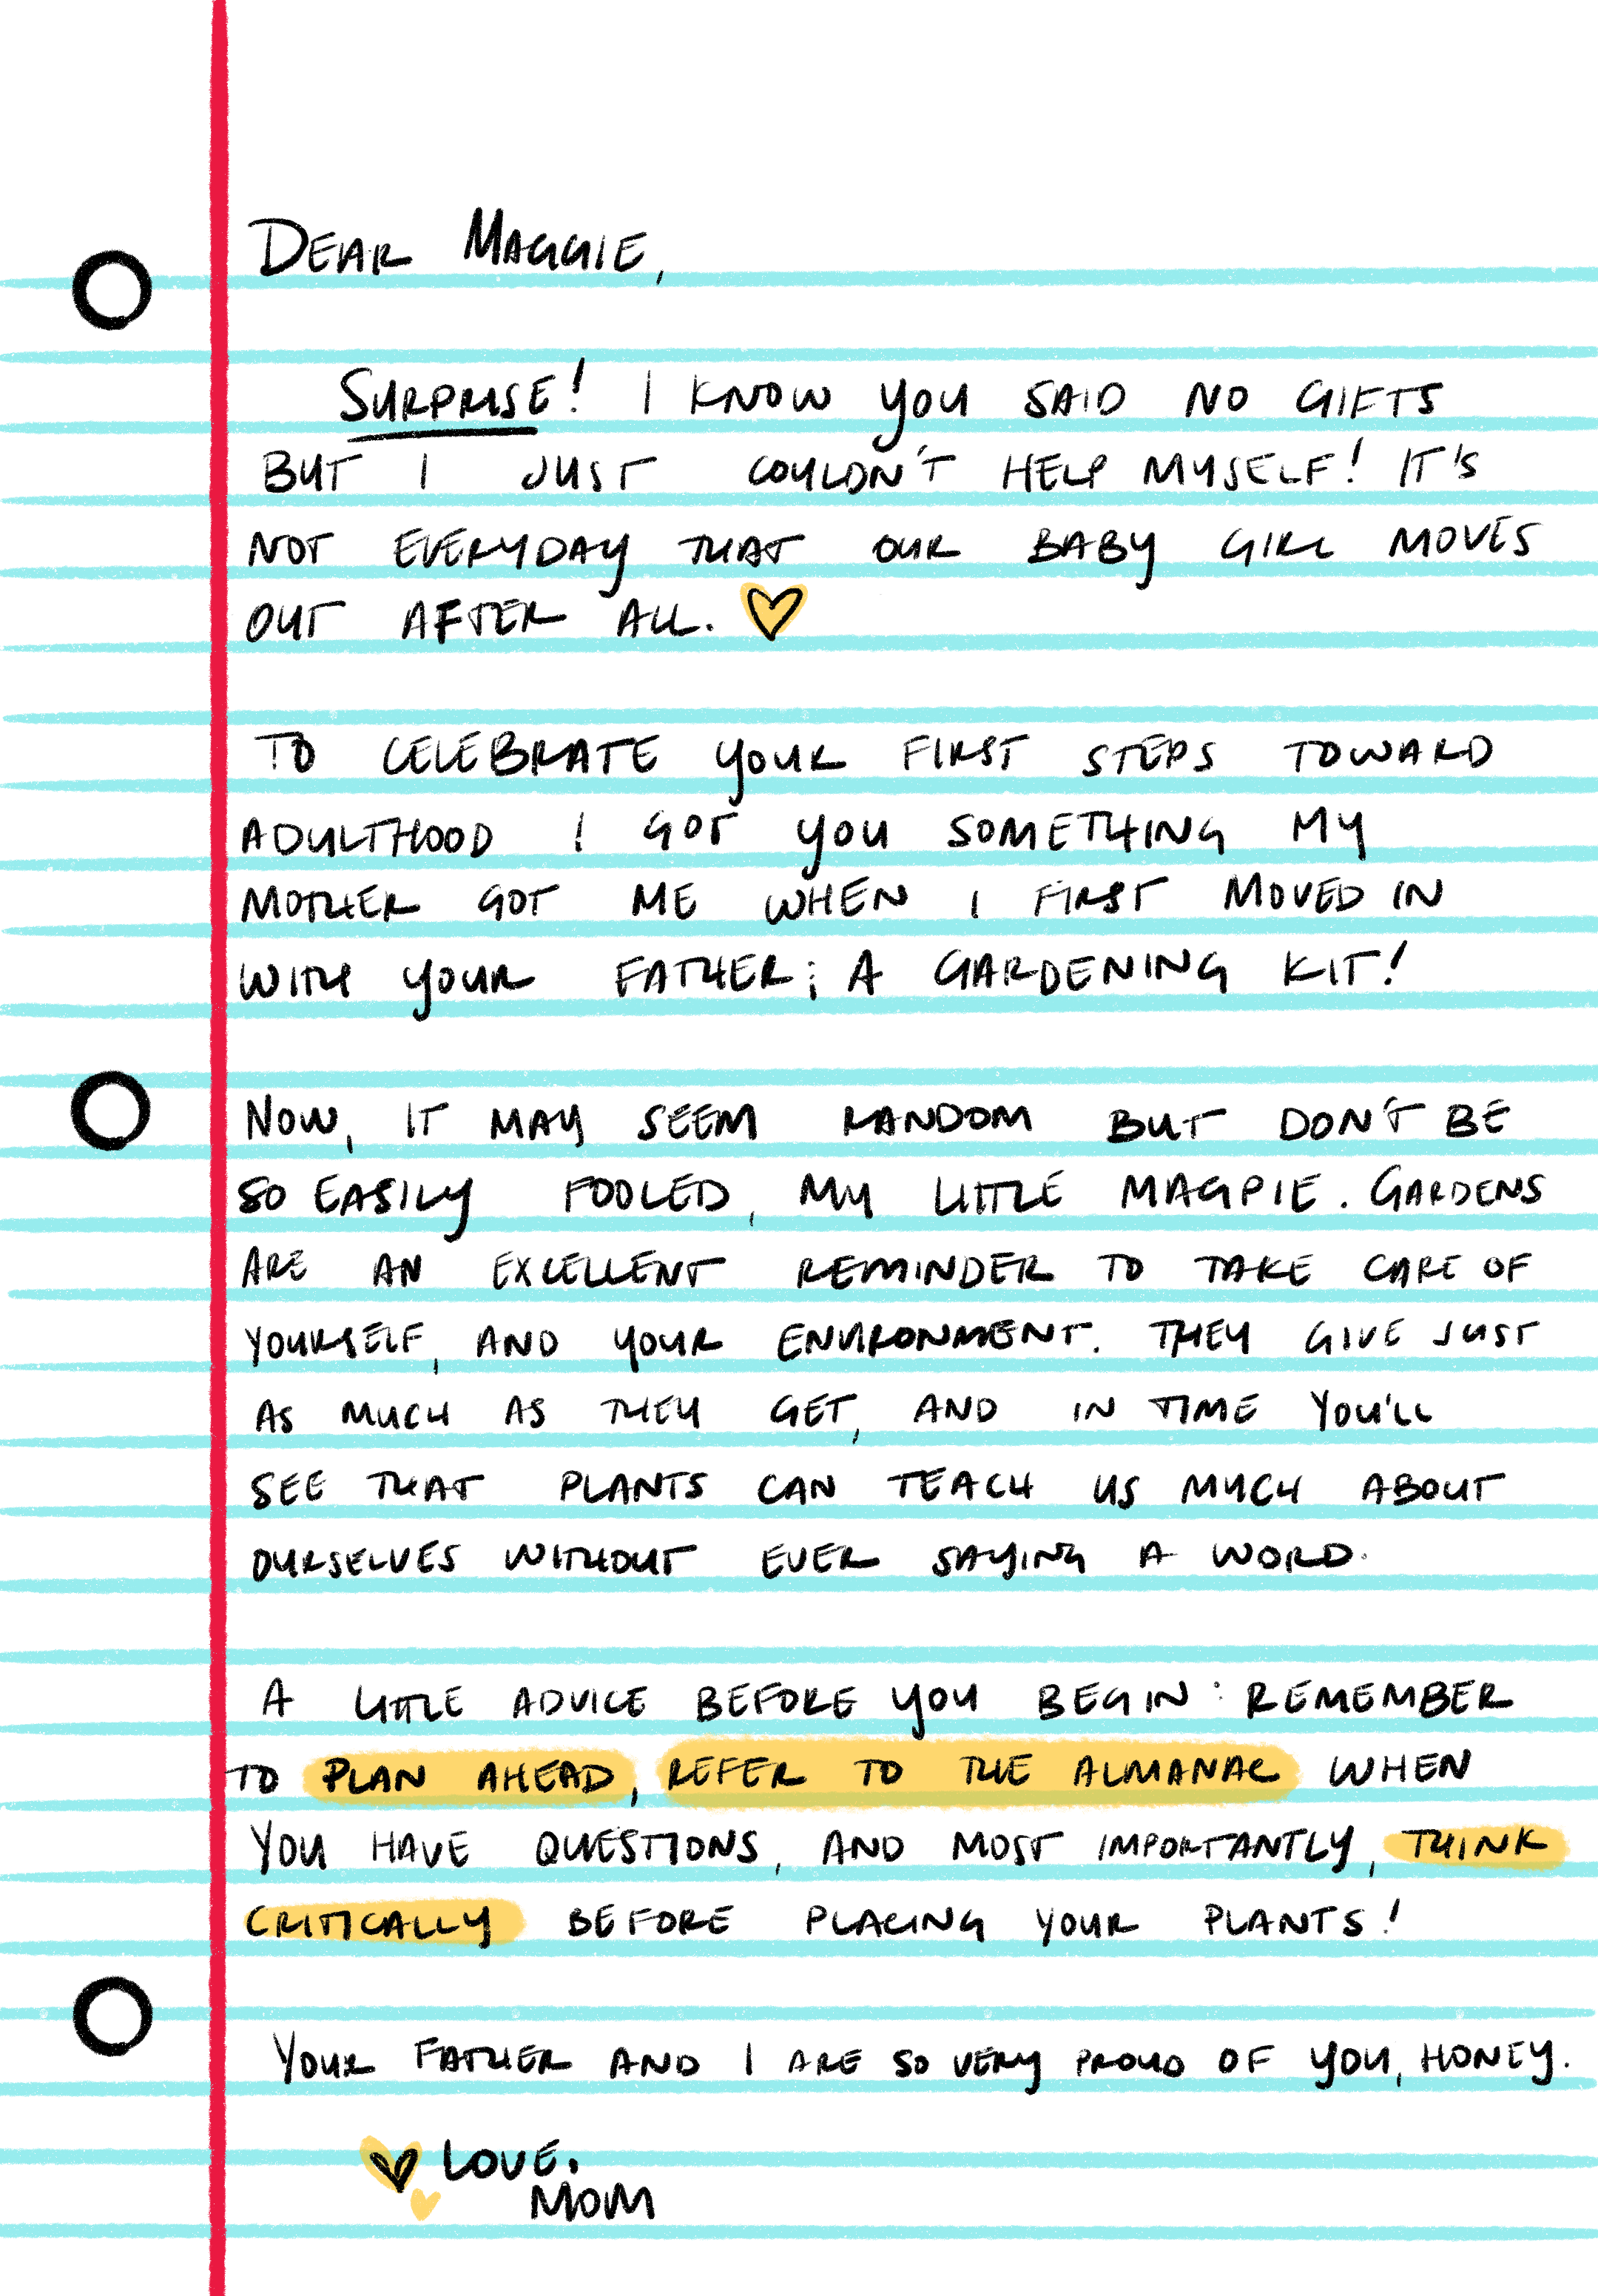 DEAR MAGGIE,
SURPRISE! I KNOW YOU SAID NO GIFTS
BUT I JUST COULDN'T HELP MYSELF! IT'S
NOT EVERYDAY THAT OUR BABY GIRL MOVES
OUT AFTER ALL.
TO CELEBRATE YOUR FIRST STEPS TOWARD
ADULTHOOD I GOT YOU SOMETHING MY
MOTHER GOT ME WHEN I FIRST MOVED IN
WITH YOUR FATHER: A GARDENING KIT!
NOW, IT MAY SEEM RANDOM BUT DON'T BE
SO EASILY FOOLED, MY LITTLE MAGPIE. GARDENS
ARE AN EXCELLENT REMINDER TO TAKE CARE OF
YOURSELF, AND YOUR ENVIRONMENT. THEY GIVE JUST
AS MUCH AS THEY GET, AND IN TIME YOU'LL
SEE THAT PLANTS CAN TEACH US MUCH ABOUT
OURSELVES WITHOUT EVER SAYING A WORD.
A LITTLE ADVICE BEFORE YOU BEGIN: REMEMBER
TO PLAN AHEAD, REFER TO THE ALMANAC WHEN
YOU HAVE QUESTIONS, AND MOST IMPORTANTLY, THINK
CRITICALLY BEFORE PLACING YOUR PLANTS!
YOUR FATHER AND I ARE SO VERY PROUD OF YOU, HONEY.
LOVE,
MOM